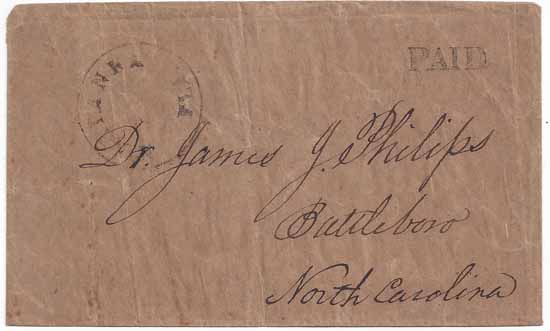 PAID
Dr. James J. Philips
Battleboro
North Carolina